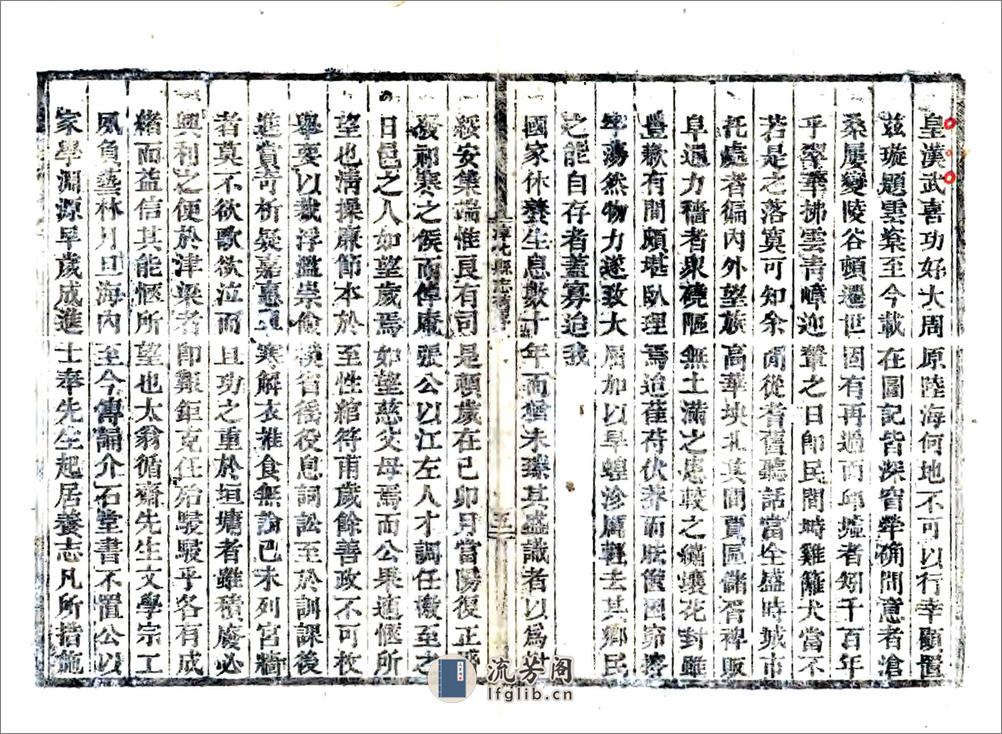 皇漢武喜功好大周原陸海何地不可以行幸顧置
茲璇題雲寀至今載在圖記皆深窅犖确間意者滄
桑屢變陵谷頓遷世因有再過而邱墟者矧千百年
乎翠華拂雲青嶂迎輦之日卽民間塒雞籬犬當不
若是之落寞可知余聞從耆舊聽話當全盛時城市
托處者徧內外望族高華坱圠其間賈區儲胥稗販
阜通力穡者衆磽陿無土滿之患較之繡壤花封雖
豐歉有間頗堪臥理焉迨萑苻伏莽而胠篋因
牢蕩然物力遂致大屈加以旱蝗沴厲輕去其鄉民
之能自存者蓋寡迨我
國家休養生息數十年而猶未臻其盛識者以爲
淳化縣志 序 五
綏安集端惟良有司是頼歲在己卯月當陽復正
祁寒之候而倬庵張公以江左人才調任至之
日邑之人如望歲焉如望慈父母焉而公果適愜所
望也淸操廉節本於至性綰符甫歲餘善政不可枚
舉要以裁浮濫崇儉樸省徭役息詞訟至於訓課後
進賞奇析疑嘉惠寒解衣推食無論已未列宮牆
者莫不欲歌欲泣而且功之重於垣墉者雖積廢必
興利之便於津梁者卽艱鉅克任殆駸駸乎各有成
緒而益信其能愜所望也太翁循齋先生文學宗工
夙負藝林月旦海內至今傳誦介石堂書不置公以
家學淵源早歲成進士奉先生起居養志凡所措施
流芳閣
lfglib.cn